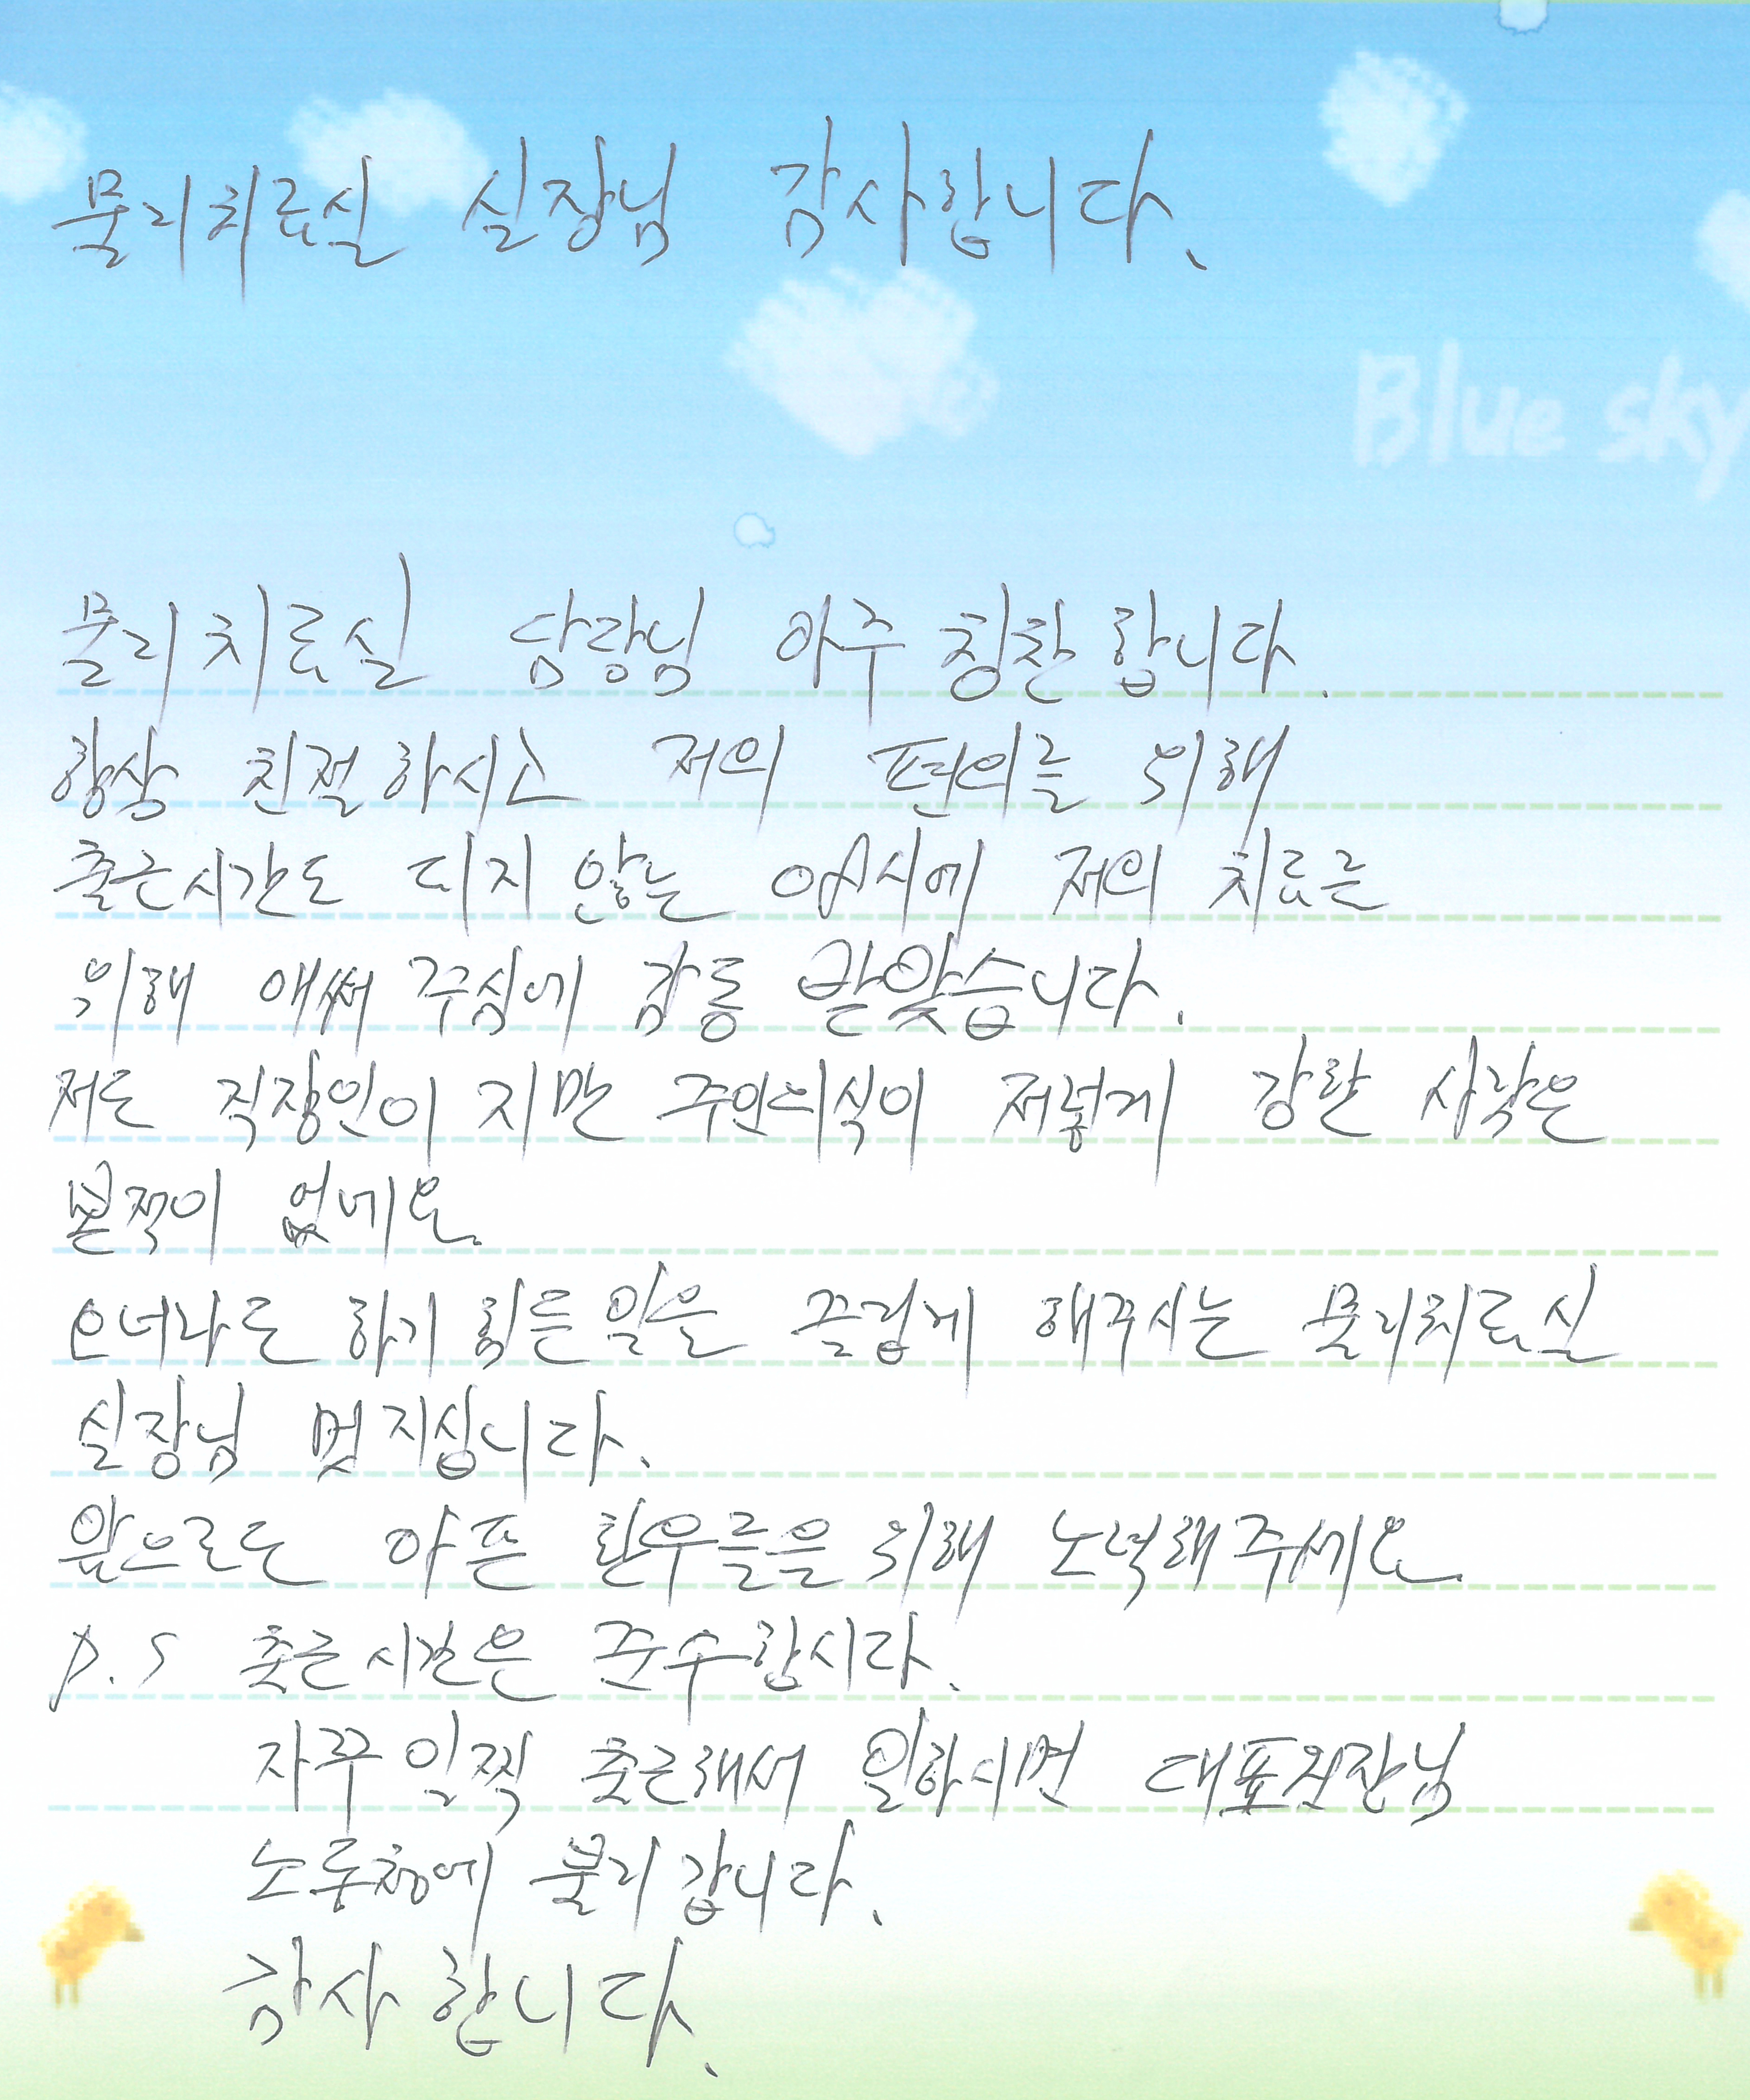 물리치료실 실장님 감사합니다.
Blue sky
물리치료실 담당님 아주 칭찬합니다.
항상 친절하시고 저의 편의를 위해
출근시간도 되지 않는 시에 저의 치료를
위해 애써 주심에 감동 받았습니다.
저도 직장인이지만 주인의식이 저렇게 강한 사람은
본적이 없네요.
오너라도 하기 힘든일을 즐겁게 해주시는 물리치료실
실장님 멋지십니다.
앞으로도 아픈 환우들을 위해 노력해주세요.
P.S 출근시간은 준수합시다.
자꾸 일찍 출근해서 일하시면 대표원장님
노동청에 불려갑니다.
감사합니다.